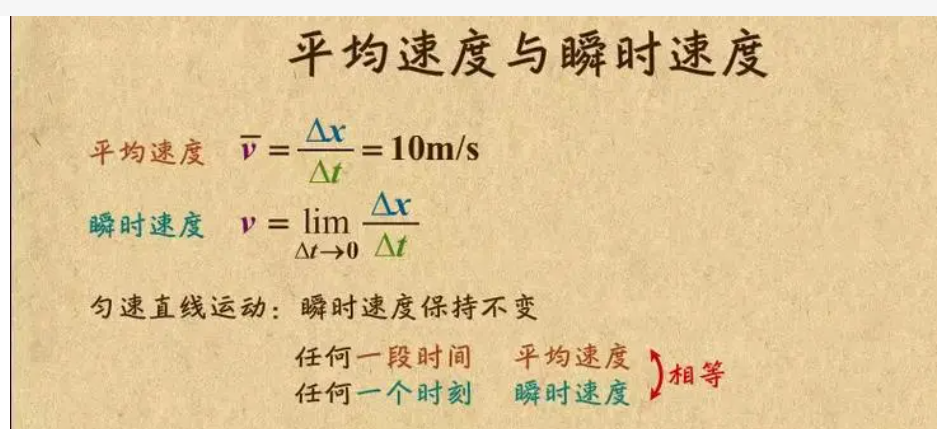 平均速度与瞬时速度
平均速度 v̅ = Δx/Δt = 10m/s
瞬时速度 v = lim Δt→0 Δx/Δt
匀速直线运动：瞬时速度保持不变
任何一段时间 平均速度
任何一个时刻 瞬时速度
相等